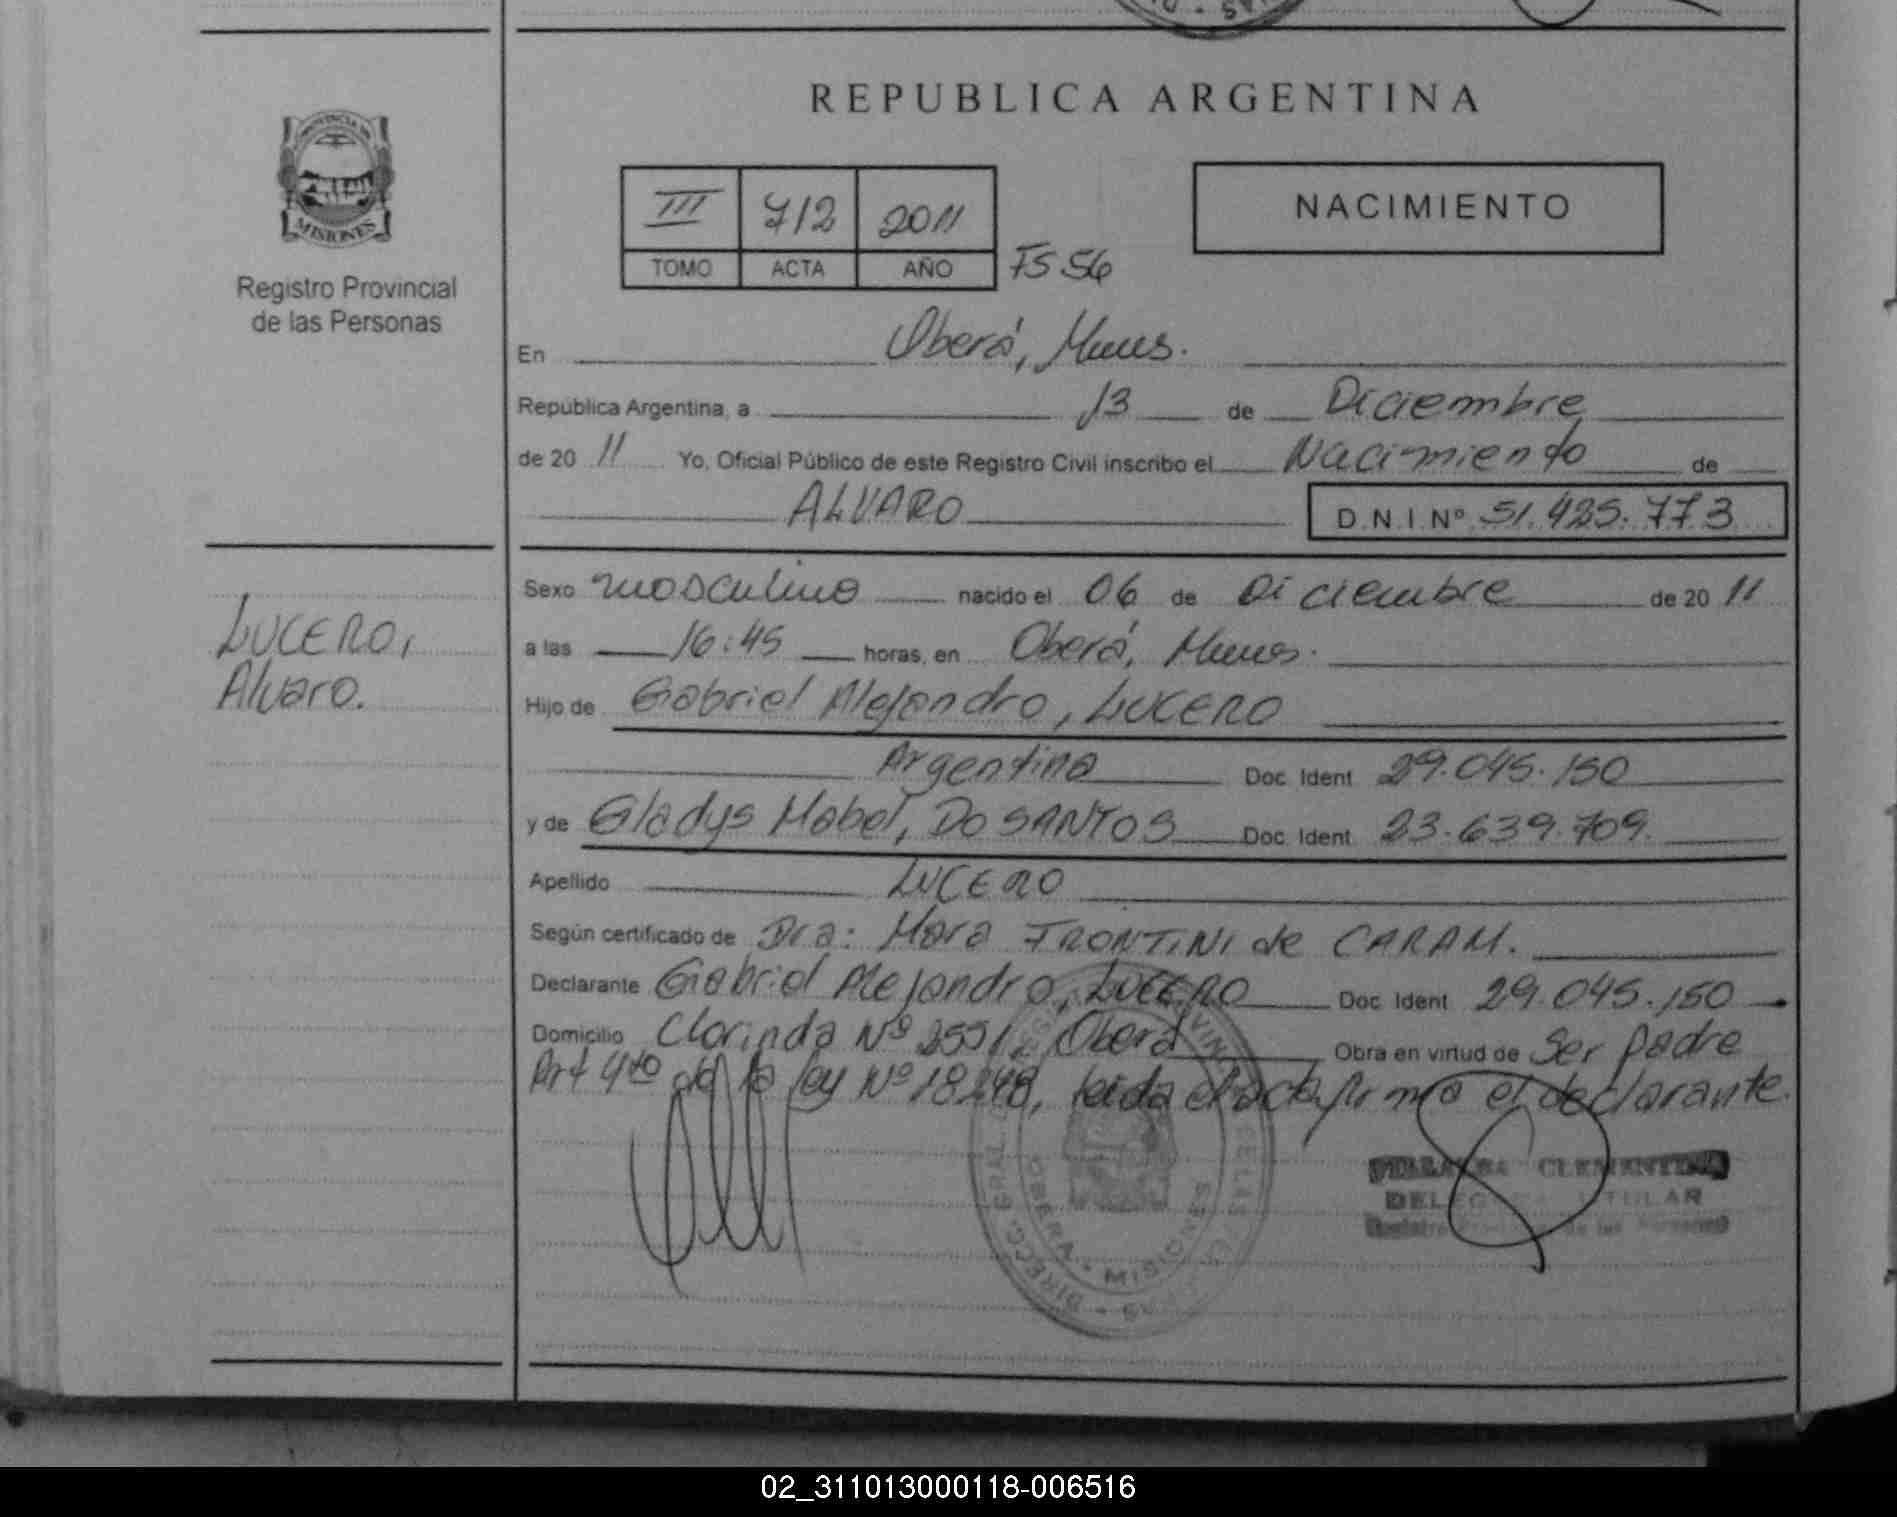 REPUBLICA ARGENTINA
PROVINCIA DE
MISIONES
Registro Provincial
de las Personas
NACIMIENTO
III 712 2011
TOMO ACTA AÑO
Fs 56
En Oberá, Mnes.
República Argentina, a 13 de Diciembre
de 20 11 Yo, Oficial Público de este Registro Civil inscribo el Nacimiento de
ALVARO D.N.I.Nº 51.425.773
LUCERO,
Alvaro.
Sexo masculino nacido el 06 de Diciembre de 20 11
a las 16:45 horas, en Oberá, Mnes.
Hijo de Gabriel Alejandro, LUCERO
Argentina Doc. Ident 29.045.150
y de Gladys Mabel, DO SANTOS Doc. Ident 23.639.709.
Apellido LUCERO
Según certificado de Dra: Mara FRONTINI de CARAM.
Declarante Gabriel Alejandro, LUCERO Doc. Ident 29.045.150
Domicilio Clorinda Nº 2551, Oberá Obra en virtud de Ser padre
Art 4to de la ley Nº 18248, leida el acta firma el declarante.
OBERA - MISIONES
CLEMENTINA
TITULAR
02_311013000118-006516